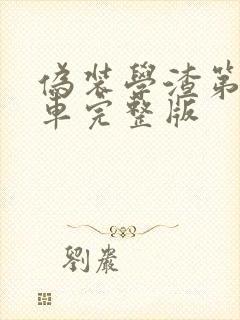 偽裝學渣第
車完整版
劉巖